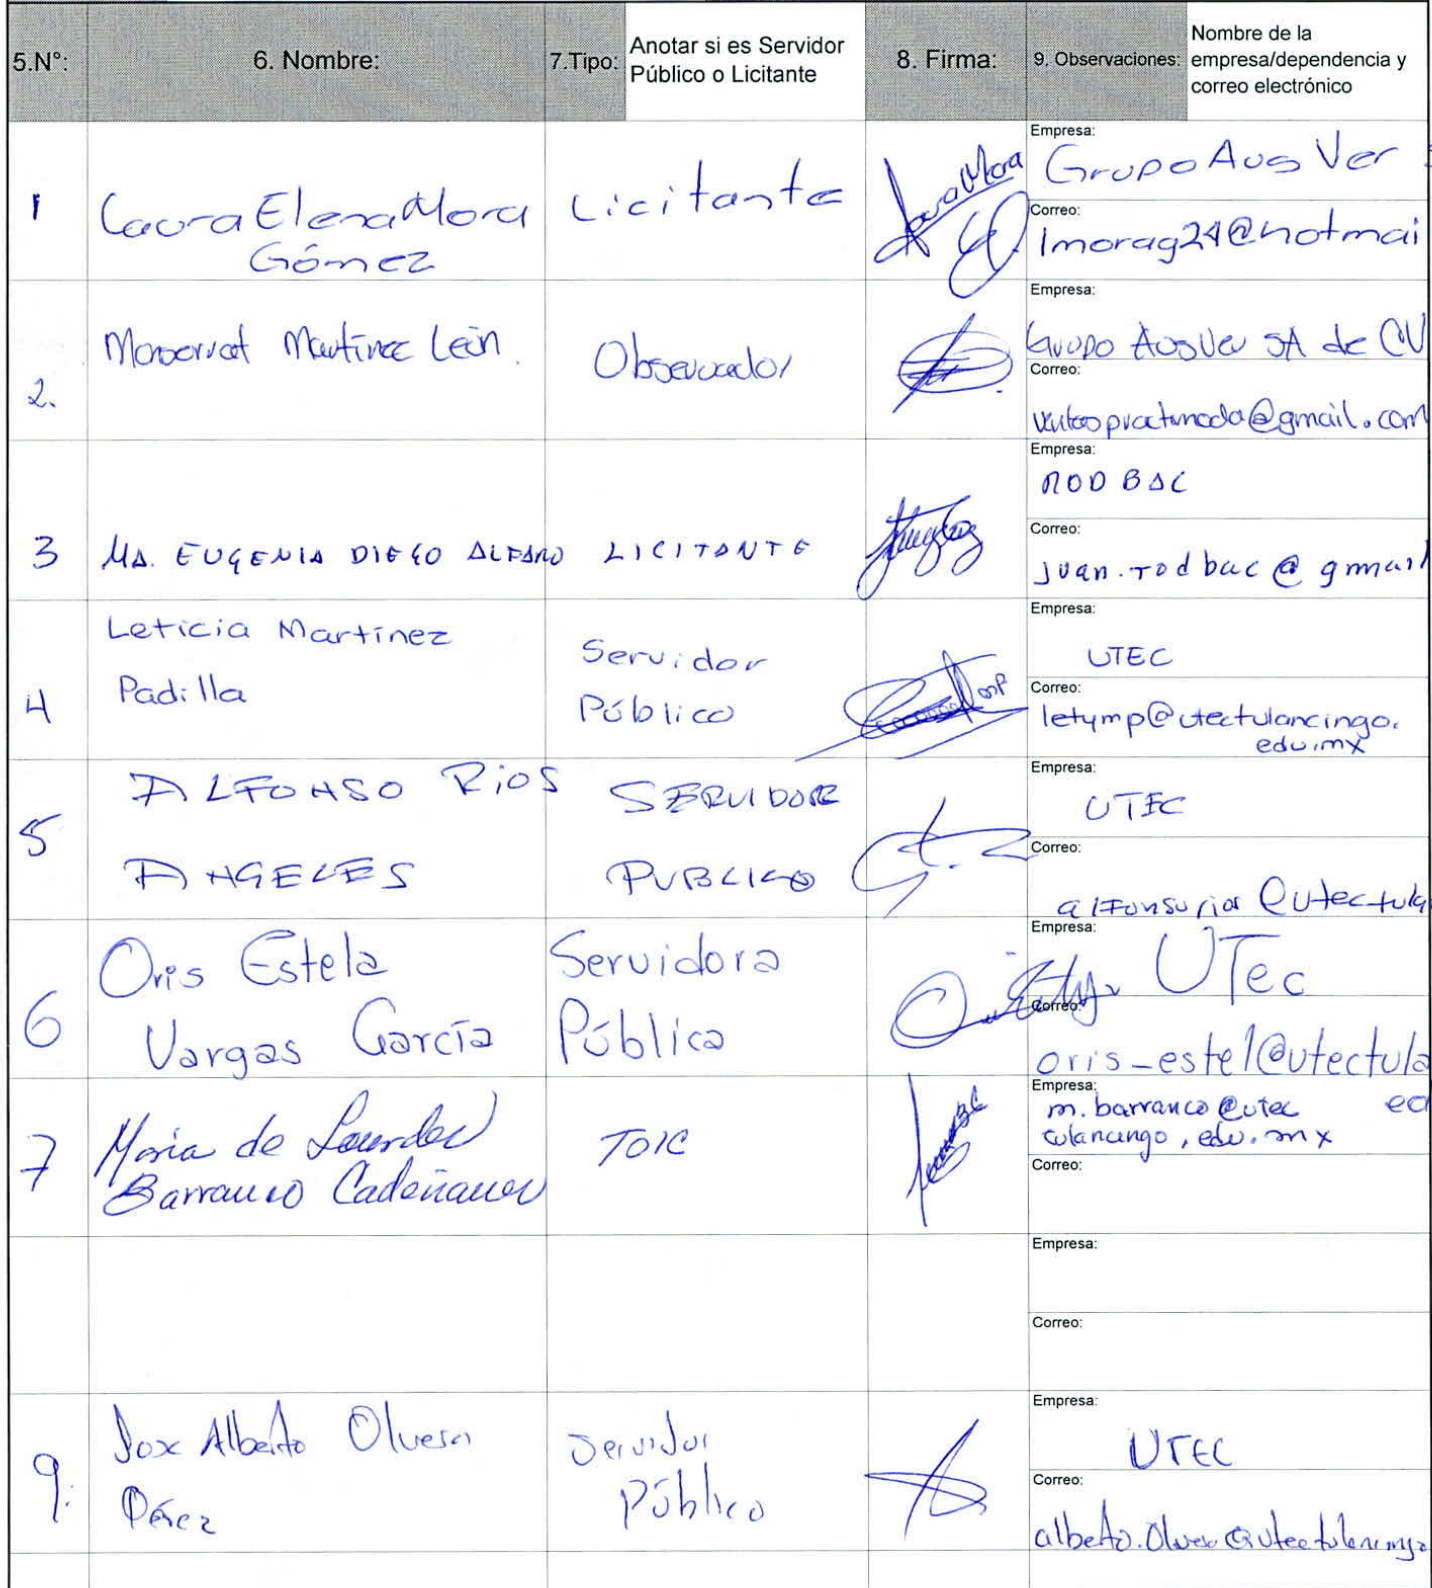 5.N°:
6. Nombre:
7.Tipo:
Anotar si es Servidor
Público o Licitante
8. Firma:
9. Observaciones:
Nombre de la
empresa/dependencia y
correo electrónico
1
Laura Elena Mora
Gómez
Licitante
Laura Mora
Empresa:
Grupo Aus Ver
Correo:
lmorag24@hotmai
2.
Monserrat Martínez León.
Observador
Empresa:
Grupo AusVer SA de CV
Correo:
@gmail.com
3
MA. EUGENIA DIEGO ALFARO
LICITANTE
Empresa:
RODBAC
Correo:
juan.rodbac@gmail
4
Leticia Martínez
Padilla
Servidor
Público
Empresa:
UTEC
Correo:
letymp@utectulancingo.
edu.mx
5
ALFONSO RioS
ANGELES
SERVIDOR
PUBLICO
Empresa:
UTEC
Correo:
alfonsorios@utectula
6
Oris Estela
Vargas García
Servidora
Pública
Empresa:
UTec
Correo:
oris_estel@utectula
ed
7
María de Lourdes
Barranco Cadeñanes
TOIC
Empresa:
m.barranco@utec
tulancingo.edu.mx
Correo:
Empresa:
Correo:
9.
Jose Alberto Olvera
Pérez
Servidor
Público
Empresa:
UTEC
Correo:
alberto.olvera@utectulancingo